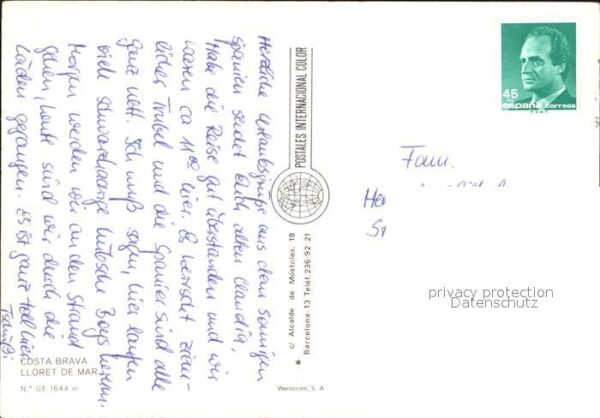 Herzliche Urlaubsgrüße aus dem sonnigen
Spanien sendet Euch allen Claudia,
Habe die Reise gut überstanden und wir
waren ca 11⁰⁰ hier. Es herrscht ziem-
licher Trubel und die Spanier sind alle
ganz nett. Ich muß sagen, hier laufen
viele schwarzhaarige hübsche Boys herum.
Morgen werden wir an den Strand
gehen, heute sind wir durch die
Läden gegangen. Es ist ganz toll hier
Tschüßi
COSTA BRAVA
LLORET DE MAR
N.° GE 1644 m
POSTALES INTERNACIONAL COLOR
* c/ Alcalde de Móstoles, 19
Barcelona-13 Telef. 236-92-21
Werscrom, S. A
45
españa Correos
Fam.
privacy protection
Datenschutz